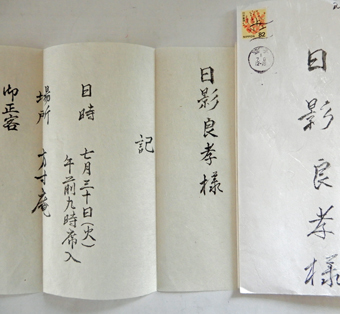 日影良孝様
日影良孝様
記
日時 七月三十日(火)
午前九時席入
場所 方寸庵
御正客